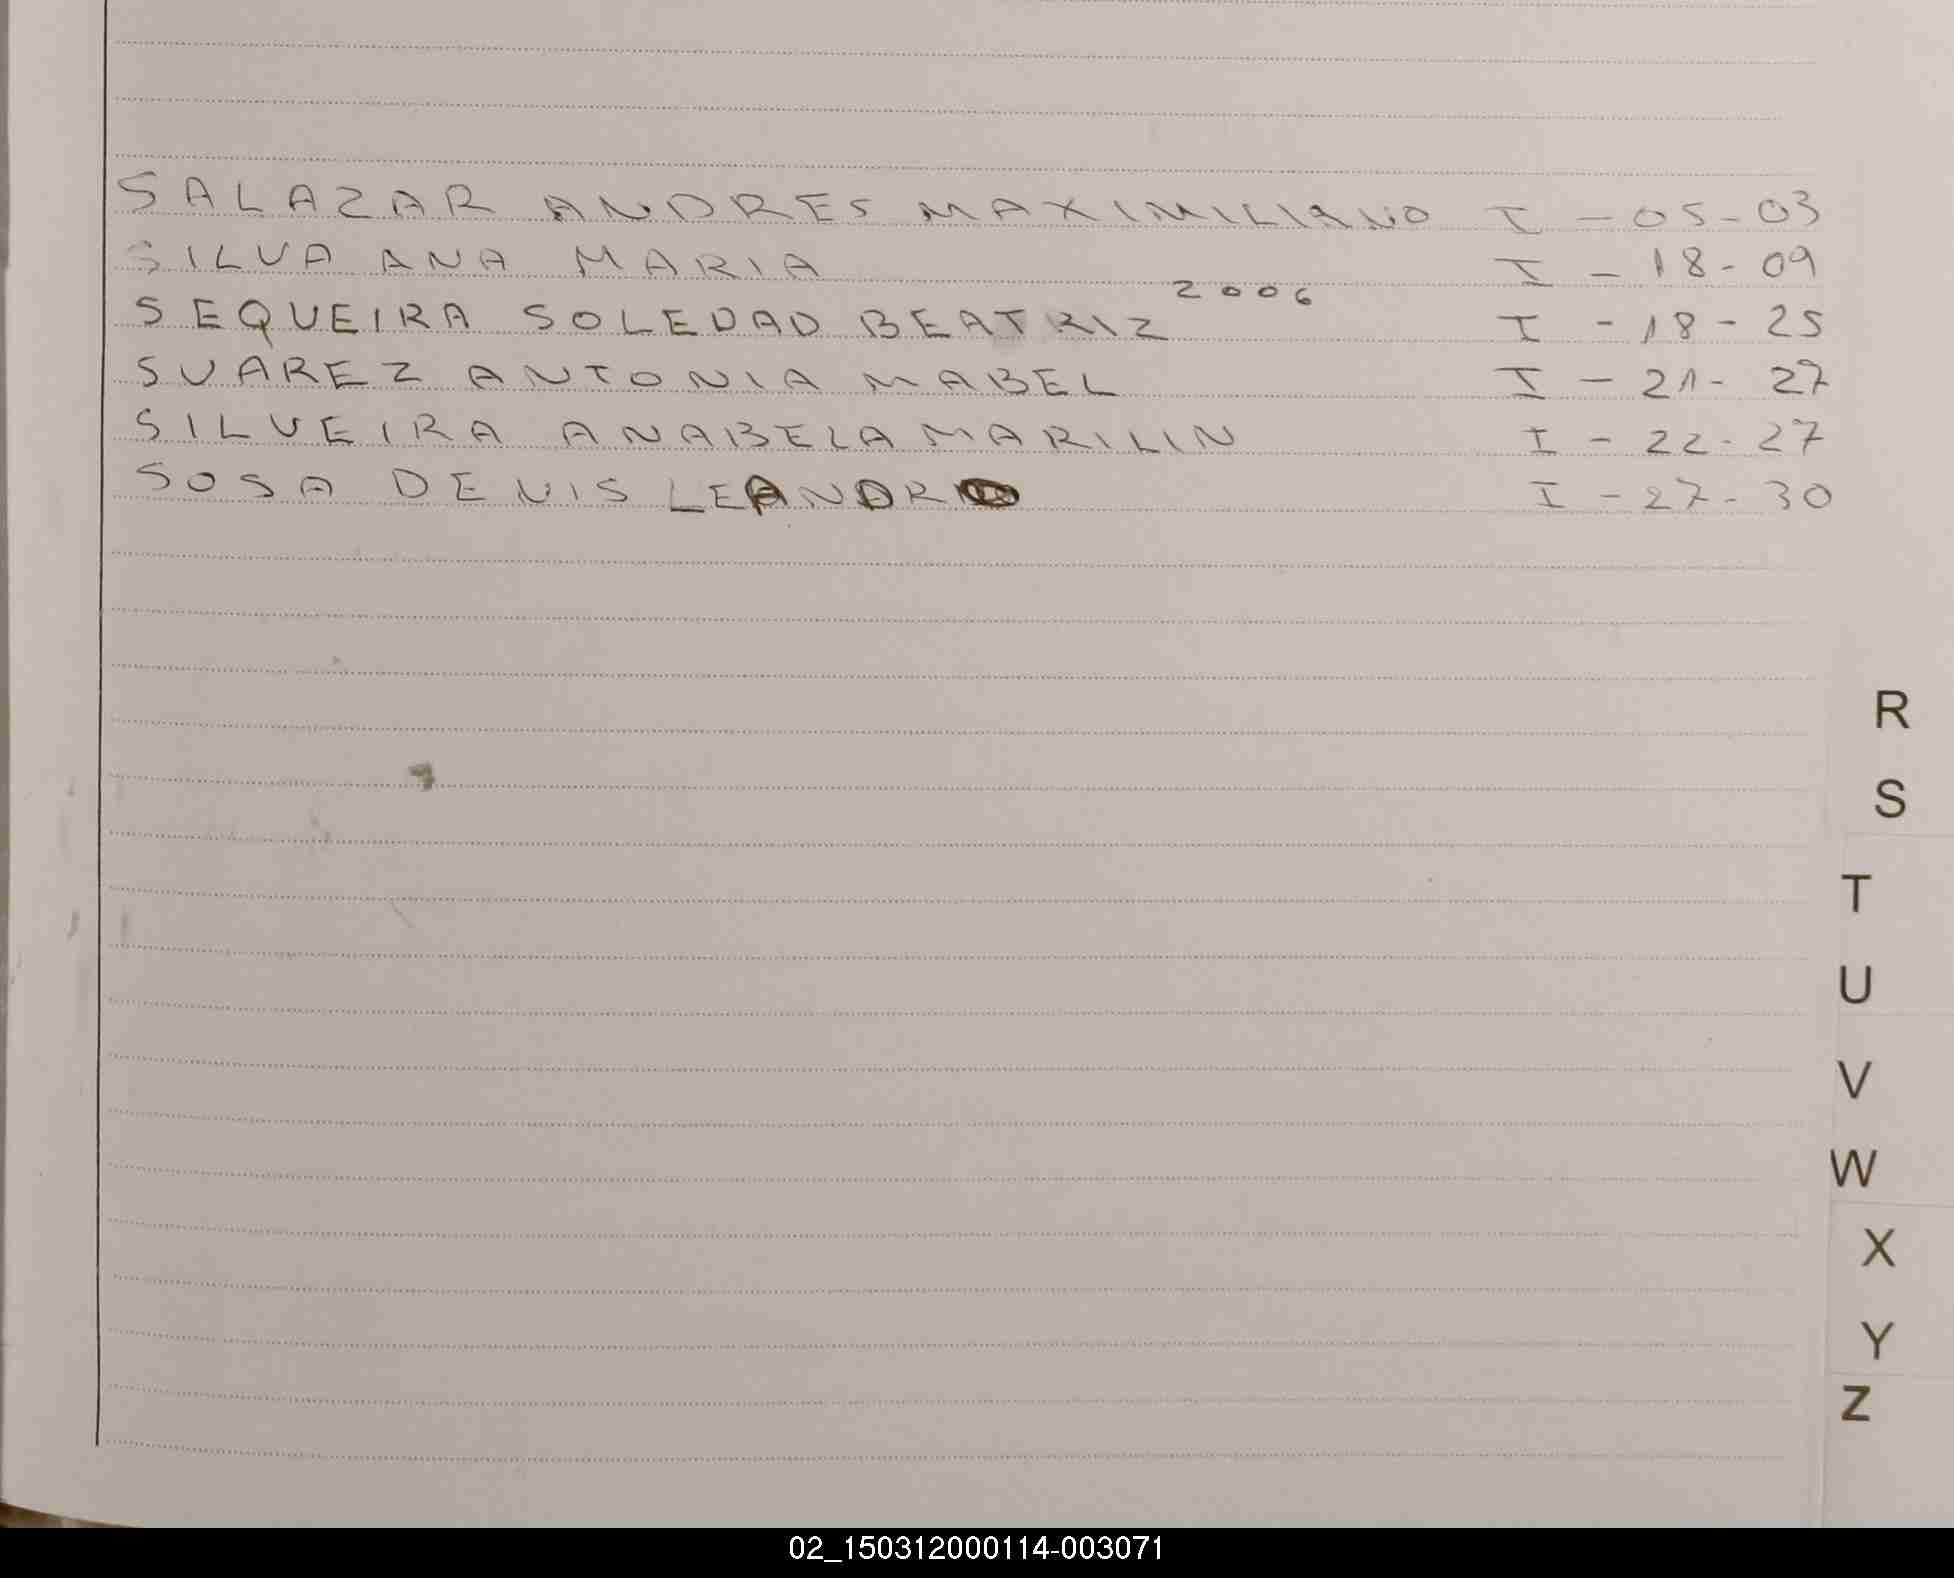 SALAZAR ANDRES MAXIMILIANO I - 05 - 03
SILVA ANA MARIA I - 18 - 09
SEQUEIRA SOLEDAD BEATRIZ 2006 I - 18 - 25
SUAREZ ANTONIA MABEL I - 21 - 27
SILVEIRA ANABELA MARILIN I - 22 - 27
SOSA DENIS LEANDRO I - 27 - 30
R
S
T
U
V
W
X
Y
Z
02_150312000114-003071